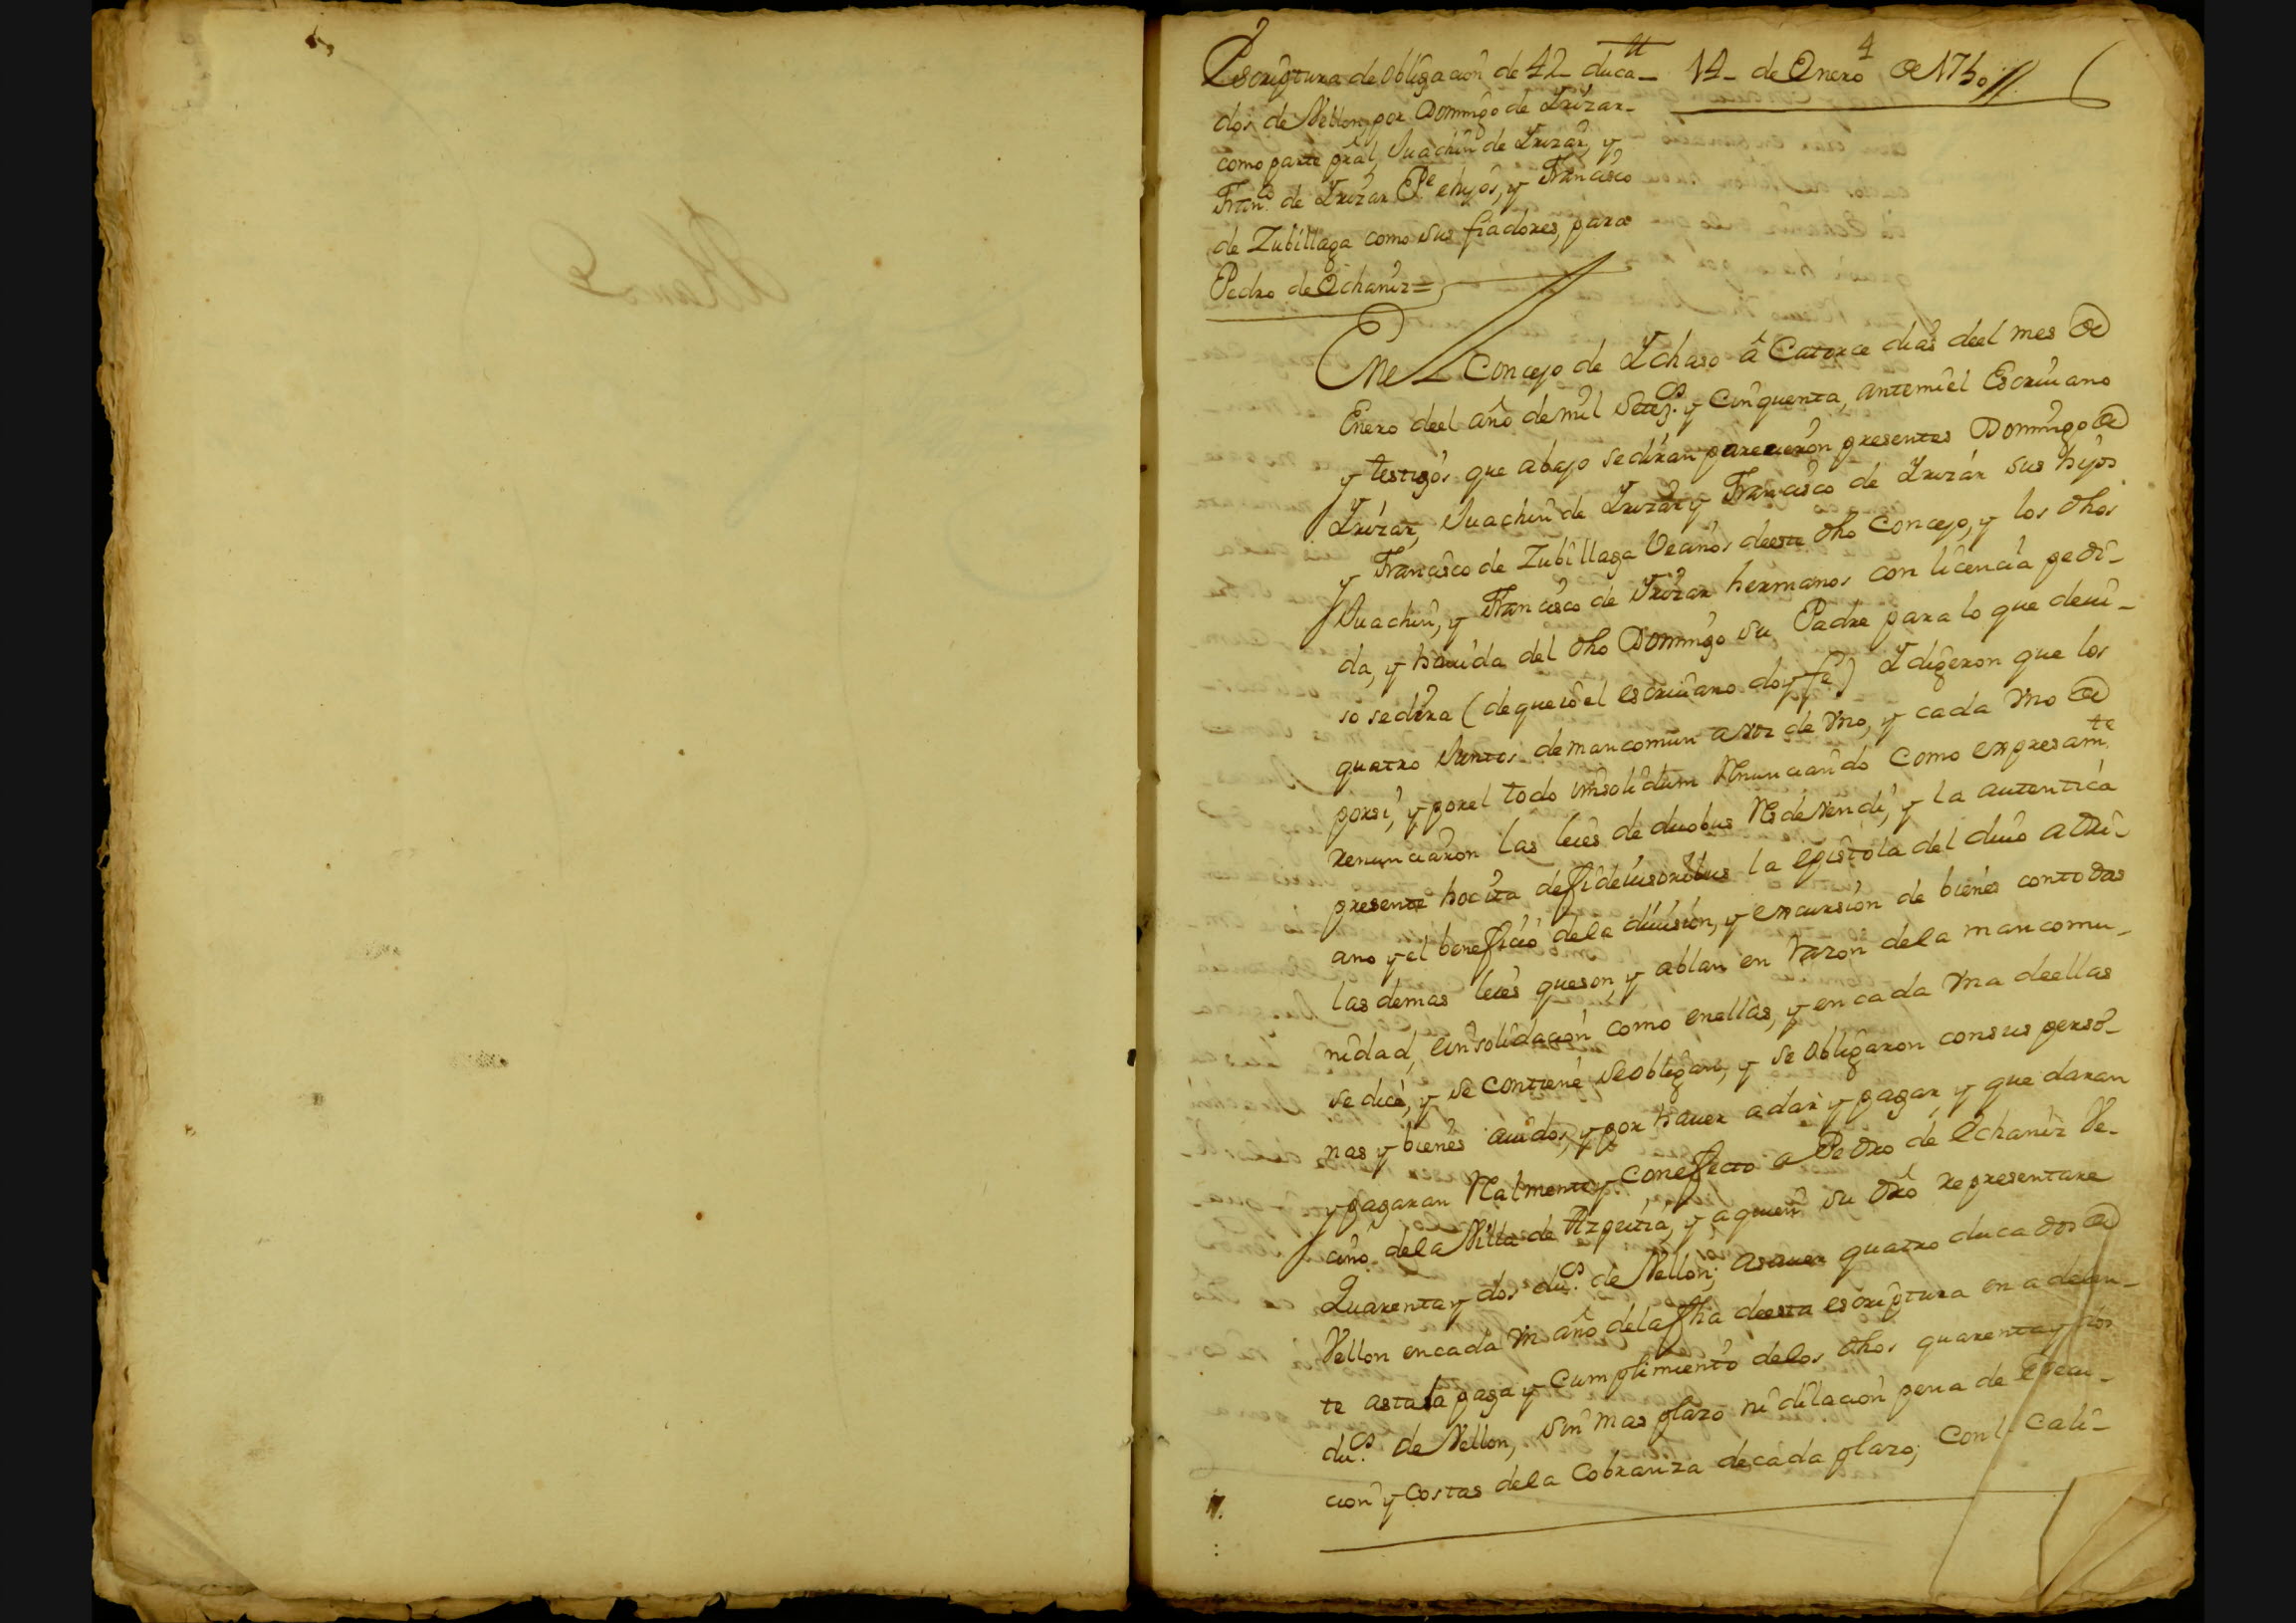 4
Escriptura de obligacion de 42 duca- 14 de Enero de 1750
dos de Vellon, por Domingo de Yrizar
como parte pral, Juachin de Yrizar, y
Franco. de Yrizar Pe. e hijos, y Francisco
de Zubillaga como sus fiadores, para
Pedro de Echaniz =
En el Concejo de Ychaso â Catorce dias deel mes de
Enero deel año de mil Setezs. y Cinquenta, antemi el Escriuano
y testigos que abajo se diran parecieron presentes Domingo de
Yrizar, Juachin de Yrizar y Francisco de Yrizar sus hijos
y Francisco de Zubillaga Vecinos deeste dho Concejo, y los dhos
Juachin, y Francisco de Yrizar hermanos con licencia pedi-
da, y hauida del dho Domingo su Padre para lo que deui-
so se dira (de que io el escriuano doy fe) Y digeron que los
quatro Juntos de mancomun a voz de vno, y cada vno de
por si, y por el todo insolidum Renunciando como expresamte.
renunciaron las leies de duobus Res devendi, y la autentica
presente hoc ita de fideiusoribus la epistola del diuo adri-
ano y el beneficio de la diuision, y excursion de bienes con todas
las demas leies que son, y ablan en Razon dela mancomu-
nidad, e insolidacion como en ellas, y en cada vna deellas
se dice, y se contiene se obligan, y se obligaron con sus perso-
nas y bienes auidos, y por hauer a dar y pagar, y que daran
y pagaran Realmente y con effecto a Pedro de Echaniz Ve-
cino dela Villa de Azpeitia, y a quien su dro representare
Quarenta y dos dus. de Vellon; asauer quatro ducados de
Vellon en cada vn año dela fha deesta escriptura en adelan-
te asta la paga y Cumplimiento delos dhos quarenta y dos
dus. de Vellon, sin mas plazo ni dilacion pena de Execu-
cion y Costas dela Cobranza de cada plazo; Con l Cali-